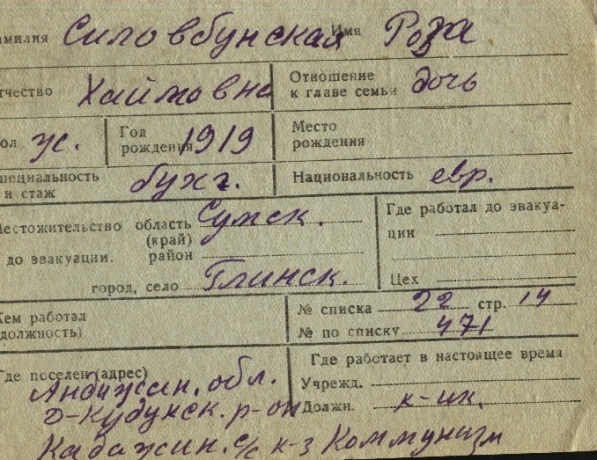 амилия Силовбунская Имя Роза
тчество Хаймовна Отношение к главе семьи дочь
ол ж. Год рождения 1919 Место рождения
пециальность и стаж бухг. Национальность евр.
Местожительство область Сумск. Где работал до эвакуа-
(край) ции
до эвакуации. район
город, село Глинск. Цех
Кем работал № списка 22 стр. 14
должность) № по списку 471
Где поселен (адрес) Где работает в настоящее время
Андижан. обл. Учрежд.
р-он Должн.
с/с к-з Коммунизм